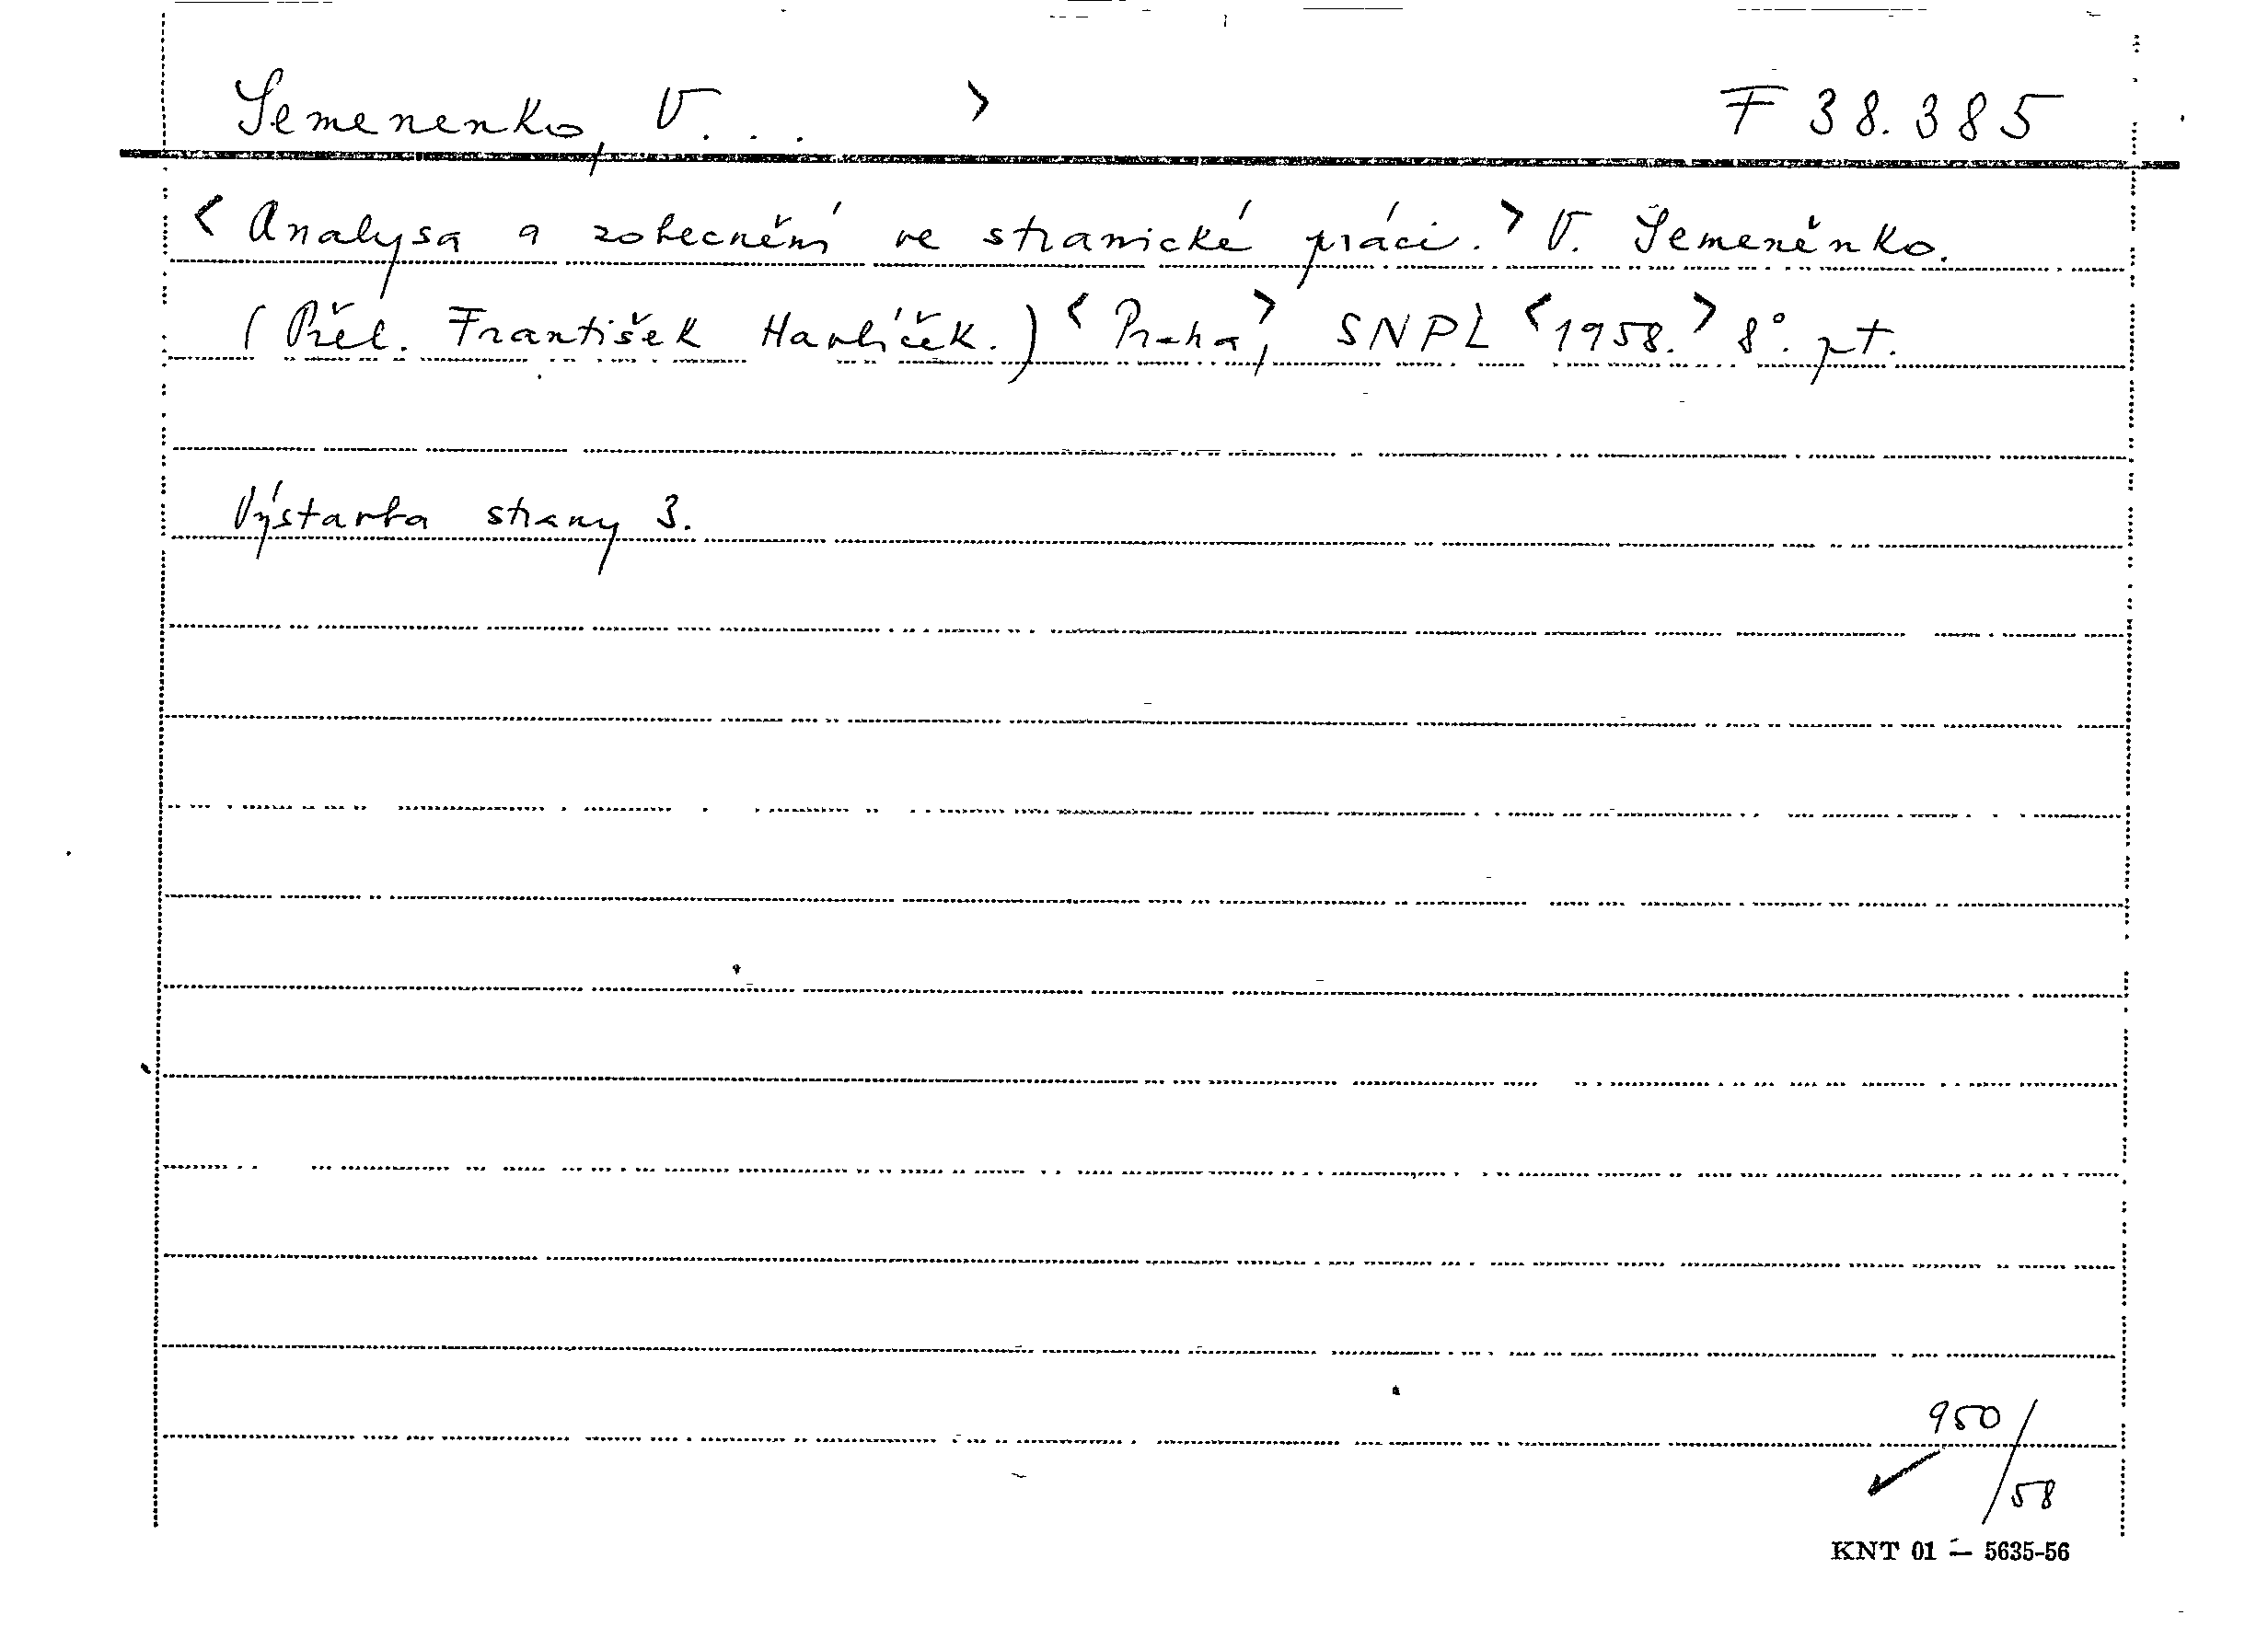 Semenenko, V... > F 38.385
< Analysa a zobecnění ve stranické práci. > V. Semeněnko.
(Přel. František Havlíček.) < Praha >, SNPL < 1958. > 8°. pt.
Výstavba strany 3.
950/58
KNT 01 — 5635-56